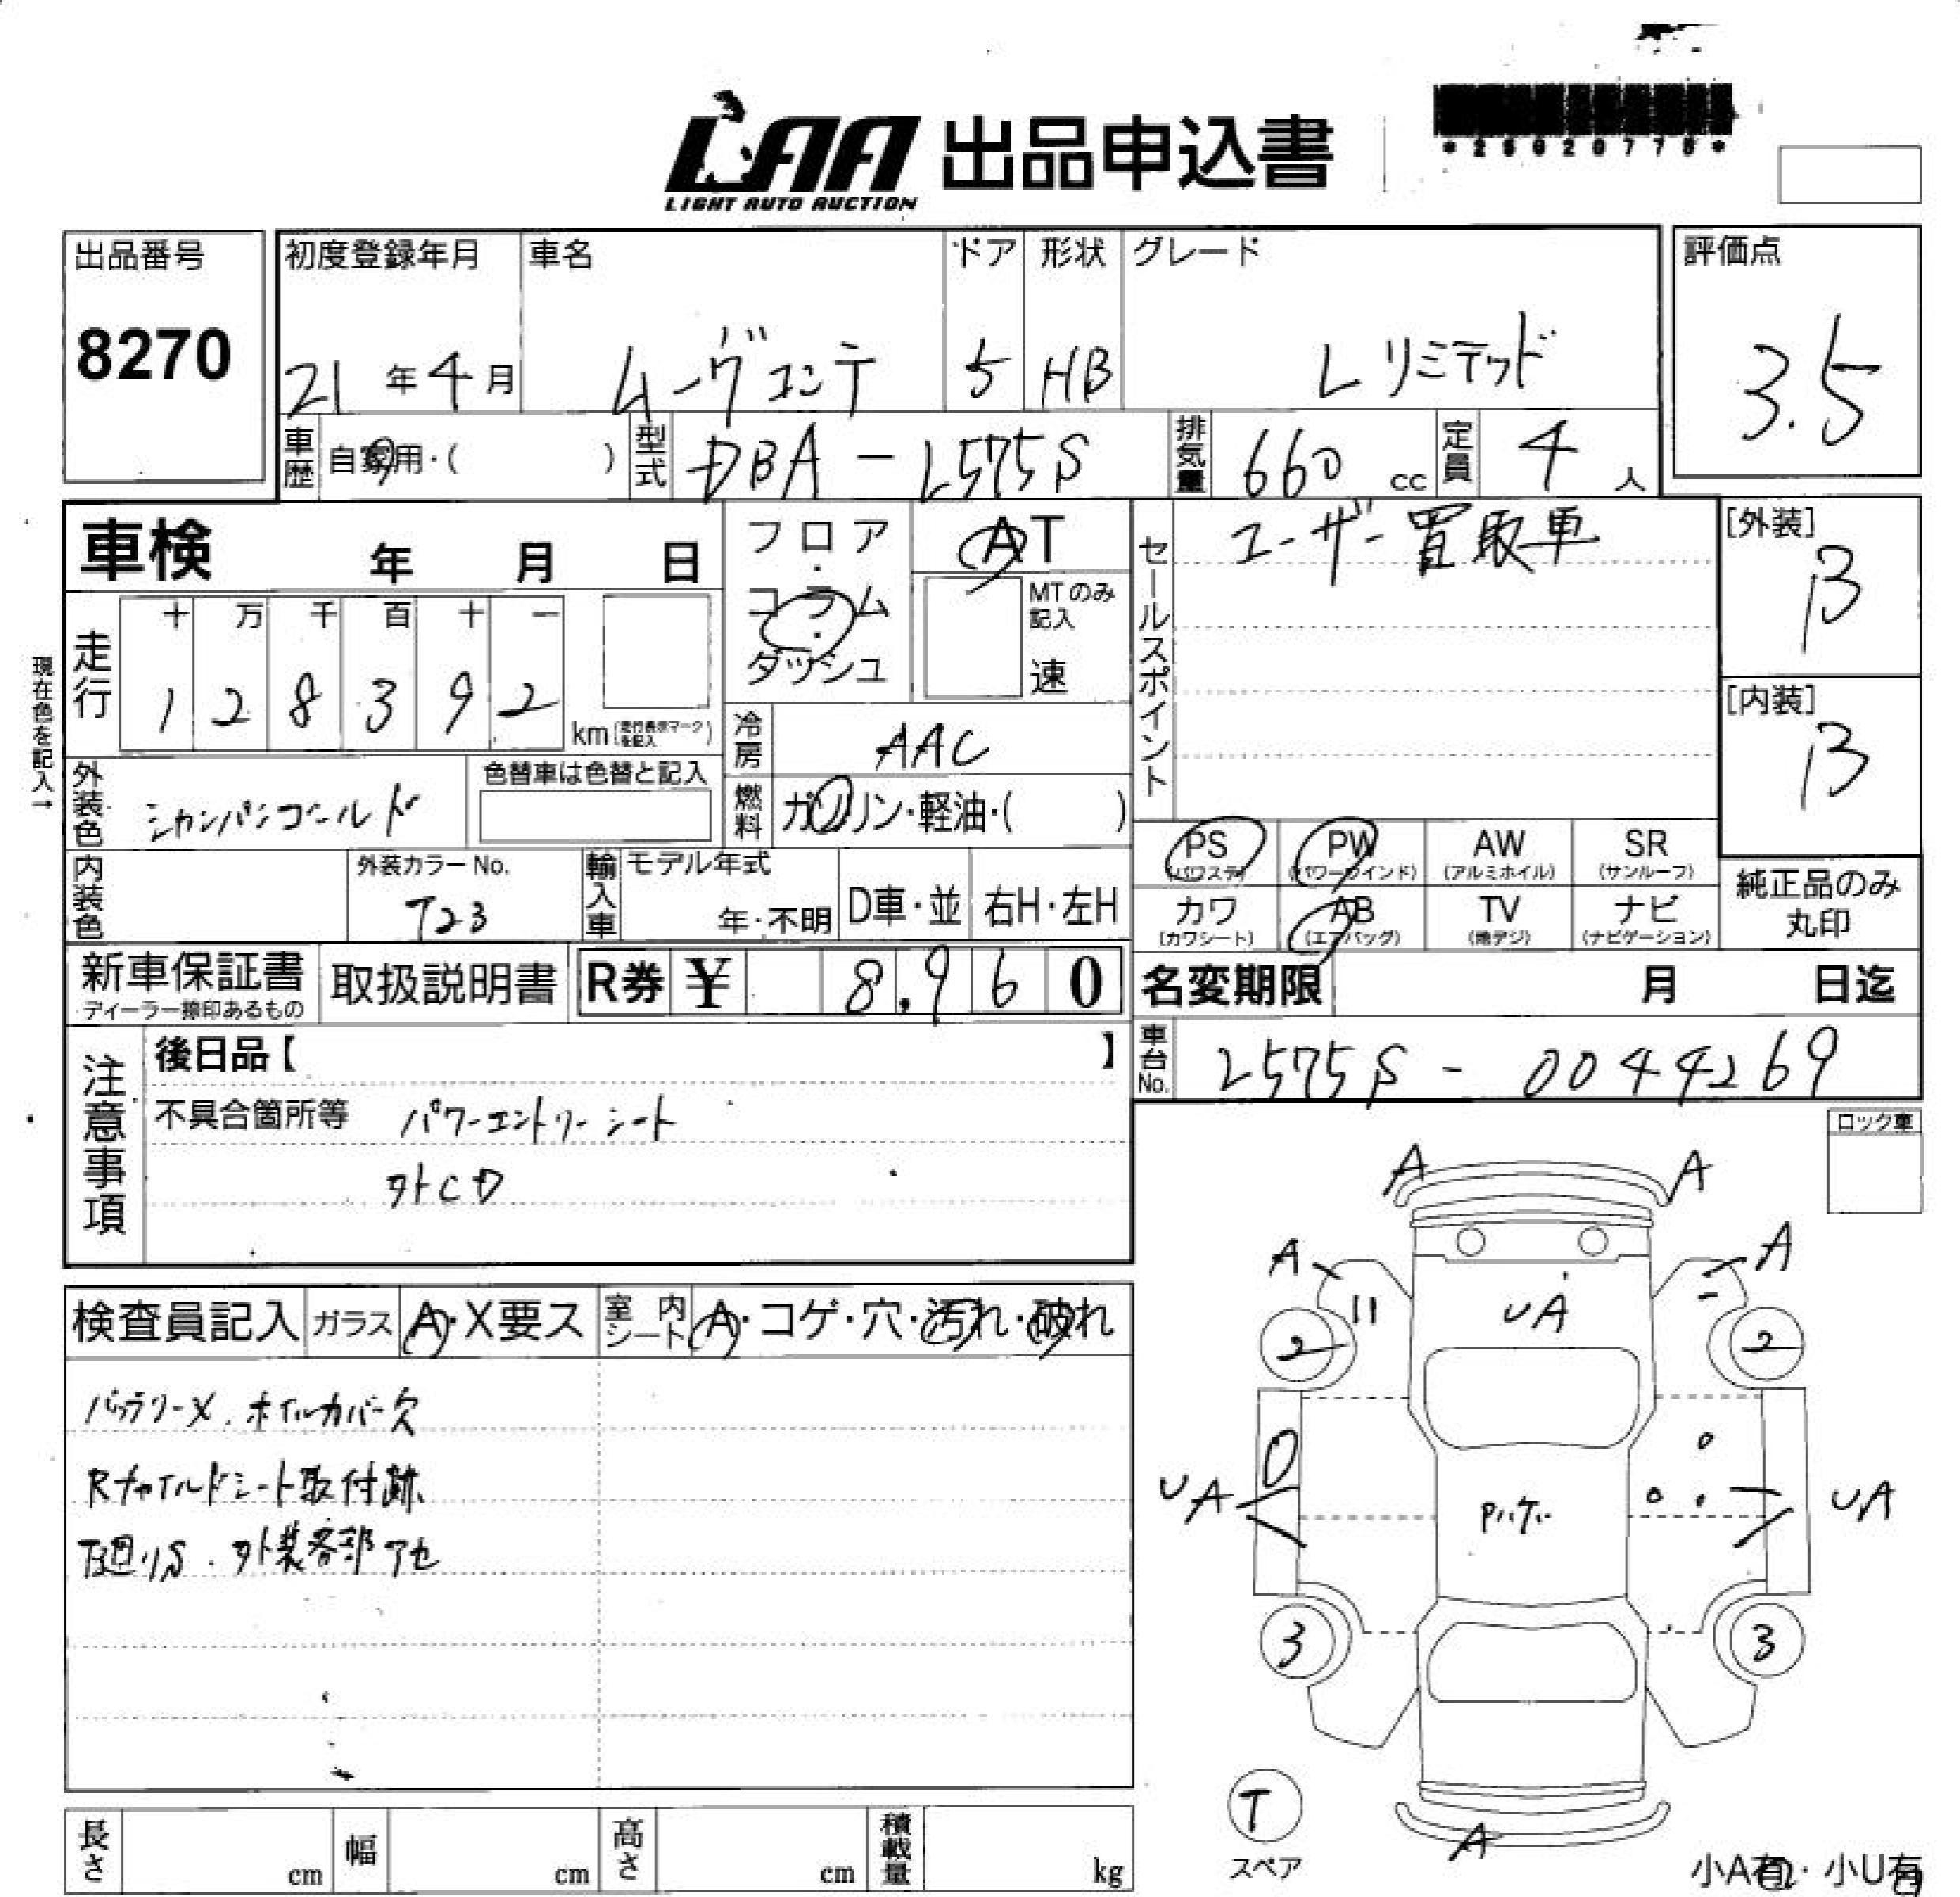 LAA 出品申込書
LIGHT AUTO AUCTION
出品番号
8270
初度登録年月
21年4月
車名
ムーヴコンテ
ドア
5
形状
HB
グレード
Lリミテッド
評価点
3.5
車歴
自家用・( )
型式
DBA-L575S
排気量
660 cc
定員
4人
車検 年 月 日
フロア・コラム・ダッシュ
AT
MTのみ記入
速
セールスポイント
ユーザー買取車
[外装]
B
[内装]
B
現在色を記入→
走行
十 万 千 百 十 一
1 2 8 3 9 2
km (走行表示マークを記入)
冷房
AAC
外装色
シャンパンゴールド
色替車は色替と記入
燃料
ガソリン・軽油・( )
PS (パワステ)
PW (パワーウインド)
AW (アルミホイル)
SR (サンルーフ)
カワ (カワシート)
AB (エアバッグ)
TV (地デジ)
ナビ (ナビゲーション)
純正品のみ
丸印
内装色
外装カラーNo.
T23
輸入車
モデル年式
年・不明
D車・並
右H・左H
新車保証書
ディーラー捺印あるもの
取扱説明書
R券 ¥ 8,960
名変期限 月 日迄
車台No.
L575S-0044269
注意事項
後日品【 】
不具合箇所等 パワーエントリーシート
外CD
ロック車
検査員記入
ガラス
A・X要ス
室内シート
A・コゲ・穴・汚れ・破れ
バッテリーX.ホイルカバー欠
Rチャイルドシート取付跡
下廻りS.外装各部アセ
A A
A A
UA
2 2
UA UA
3 3
T
スペア
A
小A有・小U有
長さ cm
幅 cm
高さ cm
積載量 kg